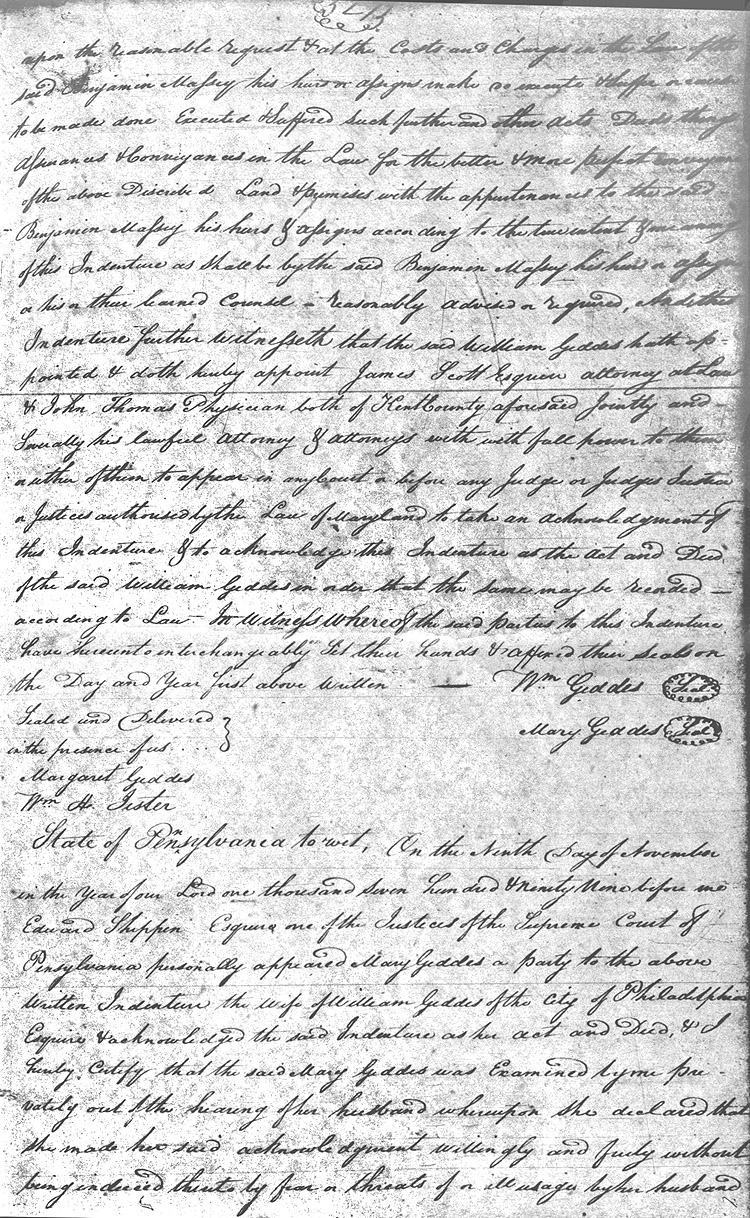 upon the reasonable request & at the Costs and Charges in the Law of the
said Benjamin Massey his heirs or assigns make do execute & suffer or cause
to be made done Executed & Suffered such further and other acts Deeds things
assurances & Conveyances in the Law for the better & more perfect conveyance
of the above Discribed Land & premises with the appurtenances to the said
Benjamin Massey his heirs & assigns according to the true intent & meaning
of this Indenture as shall be by the said Benjamin Massey his heirs or assigns
or his or their learned Counsel - reasonably advised or required, And this
Indenture further Witnesseth that the said William Geddes hath ap-
pointed & doth hereby appoint James Scott Esquire attorney at Law
& John Thomas Physician both of Kent County aforesaid Jointly and -
Severally his lawful attorney & attorneys with with full power to them
or either of them to appear in any Court or before any Judge or Judges Justice
or Justices authorised by the Law of Maryland to take an acknowledgment of
this Indenture & to acknowledge this Indenture as the act and Deed
of the said William Geddes in order that the same may be recorded —
according to Law - In Witness Whereof the said parties to this Indenture
have hereunto interchangeably Set their hands & affixed their seals on
the Day and Year first above written — Wm Geddes Seal
Sealed and Delivered
in the presence of us ... Mary Geddes Seal
Margaret Geddes
Wm H. Jester
State of Pensylvania to wit, On the Ninth Day of November
in the Year of our Lord one thousand Seven hundred & Ninety Nine before me
Edward Shippen Esquire one of the Justices of the Supreme Court of
Pensylvania personally appeared Mary Geddes a party to the above
Written Indenture the Wife of William Geddes of the City of Philadelphia
Esquire & acknowledged the said Indenture as her act and Deed, & I
hereby Certify that the said Mary Geddes was Examined by me pri-
vately out of the hearing of her husband whereupon she declared that
she made her said acknowledgment willingly and freely without
being induced thereto by fear or threats of or ill usage by her husband